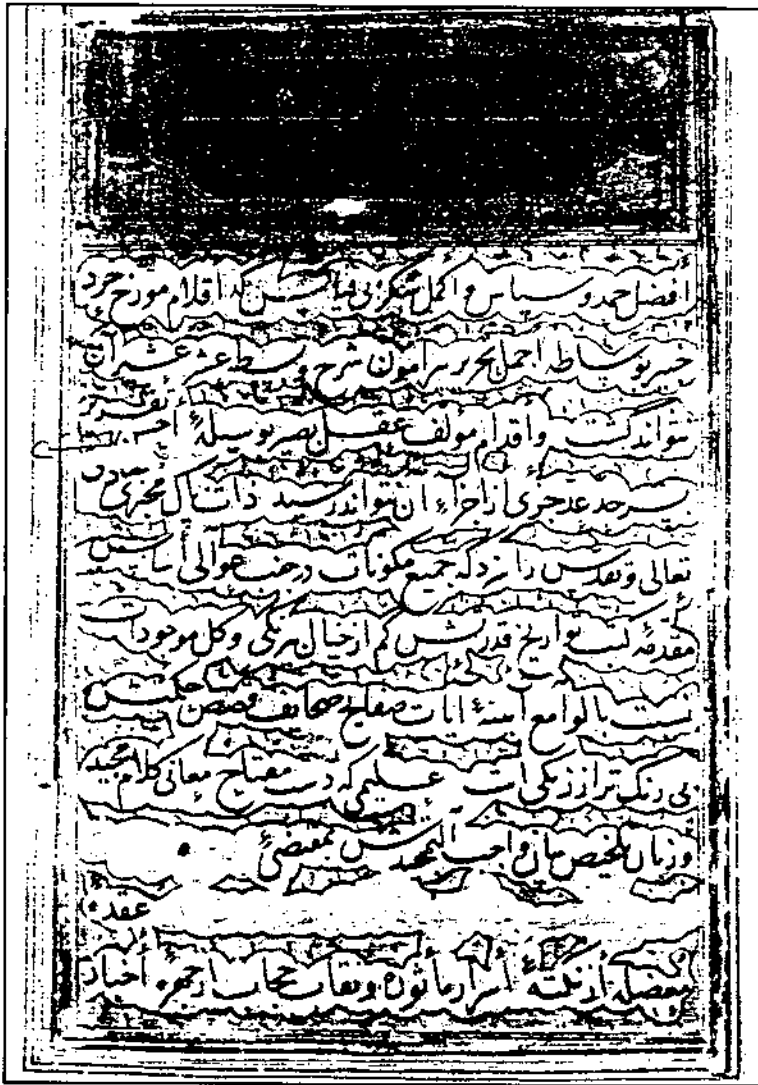 افضل حمد و سپاس و اکمل شکر بی قیاس که اقلام مورخ خرد
خبیر بوساطهٔ اجمل تحریر پیرامون شرح وسطه عشر عشر آن
نتواند گشت و اقدام مؤلف عقل بصیر بوسیلهٔ تقریر
بسرحد عد جزی از اجزاء آن نتواند رسید ذات پاک
تعالی و تقدس را سزد که جمیع مکونات در جنب حوالی
مقدمه کتب تواریخ قدرتش کم از خیال نیرنگی و کل موجودات
نسبت بالوامع آیینهٔ ایات صفایح صحایف قصص حکمتش
بی رنگ تر از زنگی است علیمی که دست مفتاح معانی کلام مجید
و زبان تلخیص بیان واجب التمجیدش بمقتضیٔ
عقدهٔ
معضله از نکتهٔ أسرار مأثوره و نقاب حجاب از چهرهٔ أخبار